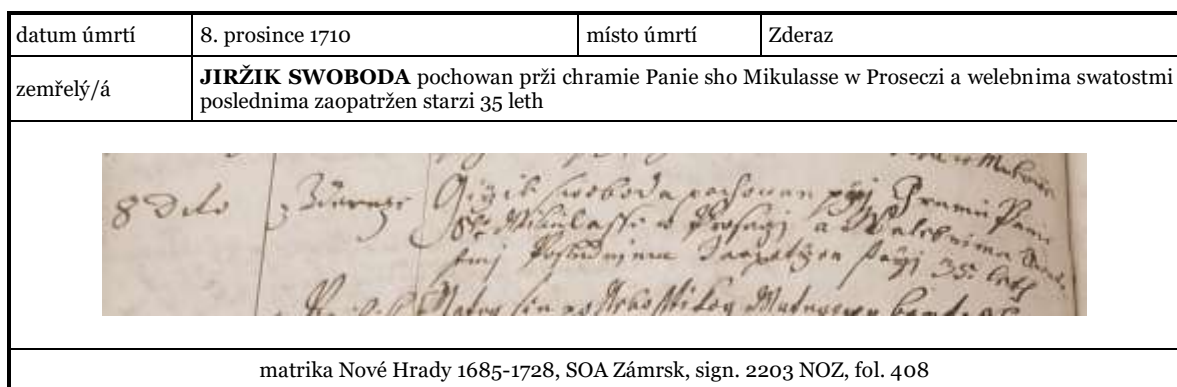 datum úmrtí 8. prosince 1710 místo úmrtí Zderaz
zemřelý/á JIRŽIK SWOBODA pochowan prži chramie Panie sho Mikulasse w Proseczi a welebnima swatostmi
poslednima zaopatržen starzi 35 leth
8 Dito Zderaze Girzik swoboda pochowan przj Chramu Panie
Mikulasse w Proseczj a Welebnima
Poslednima Zaopatrzen starzj 35 leth
matrika Nové Hrady 1685-1728, SOA Zámrsk, sign. 2203 NOZ, fol. 408